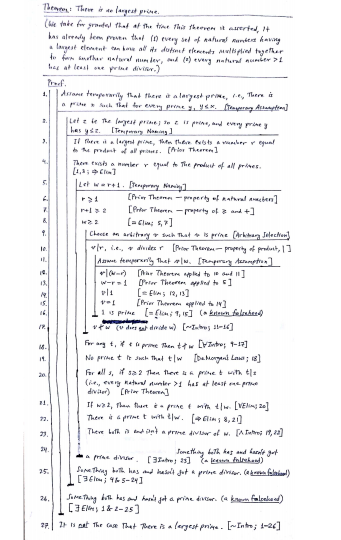 Theorem: There is no largest prime.
(We take for granted that at the time this theorem is asserted, it
has already been proven that (1) every set of natural numbers having
a largest element can have all its distinct elements multiplied together
to form another natural number, and (2) every natural number >1
has at least one prime divisor.)
Proof.
1. Assume temporarily that there is a largest prime, i.e., there is
a prime x such that for every prime y, y≤x. [Temporary Assumption]
2. Let z be the largest prime; so z is prime, and every prime y
has y≤z. [Temporary Naming]
3. If there is a largest prime, then there exists a number r equal
to the product of all primes. [Prior Theorem]
4. There exists a number r equal to the product of all primes.
[1,3; ⇒Elim]
5. Let w=r+1. [Temporary Naming]
6. r≥1 [Prior Theorem - property of natural numbers]
7. r+1≥2 [Prior Theorem - property of ≥ and +]
8. w≥2 [=Elim; 5,7]
9. Choose an arbitrary v such that v is prime [Arbitrary Selection]
10. v|r, i.e., v divides r [Prior Theorem - property of product, ]
11. Assume temporarily that v|w. [Temporary Assumption]
12. v|(w-r) [Prior Theorem applied to 10 and 11]
13. w-r=1 [Prior Theorem applied to 5]
14. v|1 [=Elim; 12,13]
15. v=1 [Prior Theorem applied to 14]
16. 1 is prime [=Elim; 9,15] (a known falsehood)
17. v∤w (v does not divide w) [~Intro; 11-16]
18. For any t, if t is prime then t∤w [∀Intro; 9-17]
19. No prime t is such that t|w [DeMorgan's Laws; 18]
20. For all s, if s≥2 then there is a prime t with t|s
(i.e., every natural number >1 has at least one prime
divisor) [Prior Theorem]
21. If w≥2, then there is a prime t with t|w. [∀Elim; 20]
22. There is a prime t with t|w. [⇒Elim; 8,21]
23. There both is and isn't a prime divisor of w. [∧Intro; 19,22]
24. Something both has and hasn't got
a prime divisor. [∃Intro; 23] (a known falsehood)
25. Something both has and hasn't got a prime divisor. (a known falsehood)
[∃Elim; 4 & 5-24]
26. Something both has and hasn't got a prime divisor. (a known falsehood)
[∃Elim; 1 & 2-25]
27. It is not the case that there is a largest prime. [~Intro; 1-26]